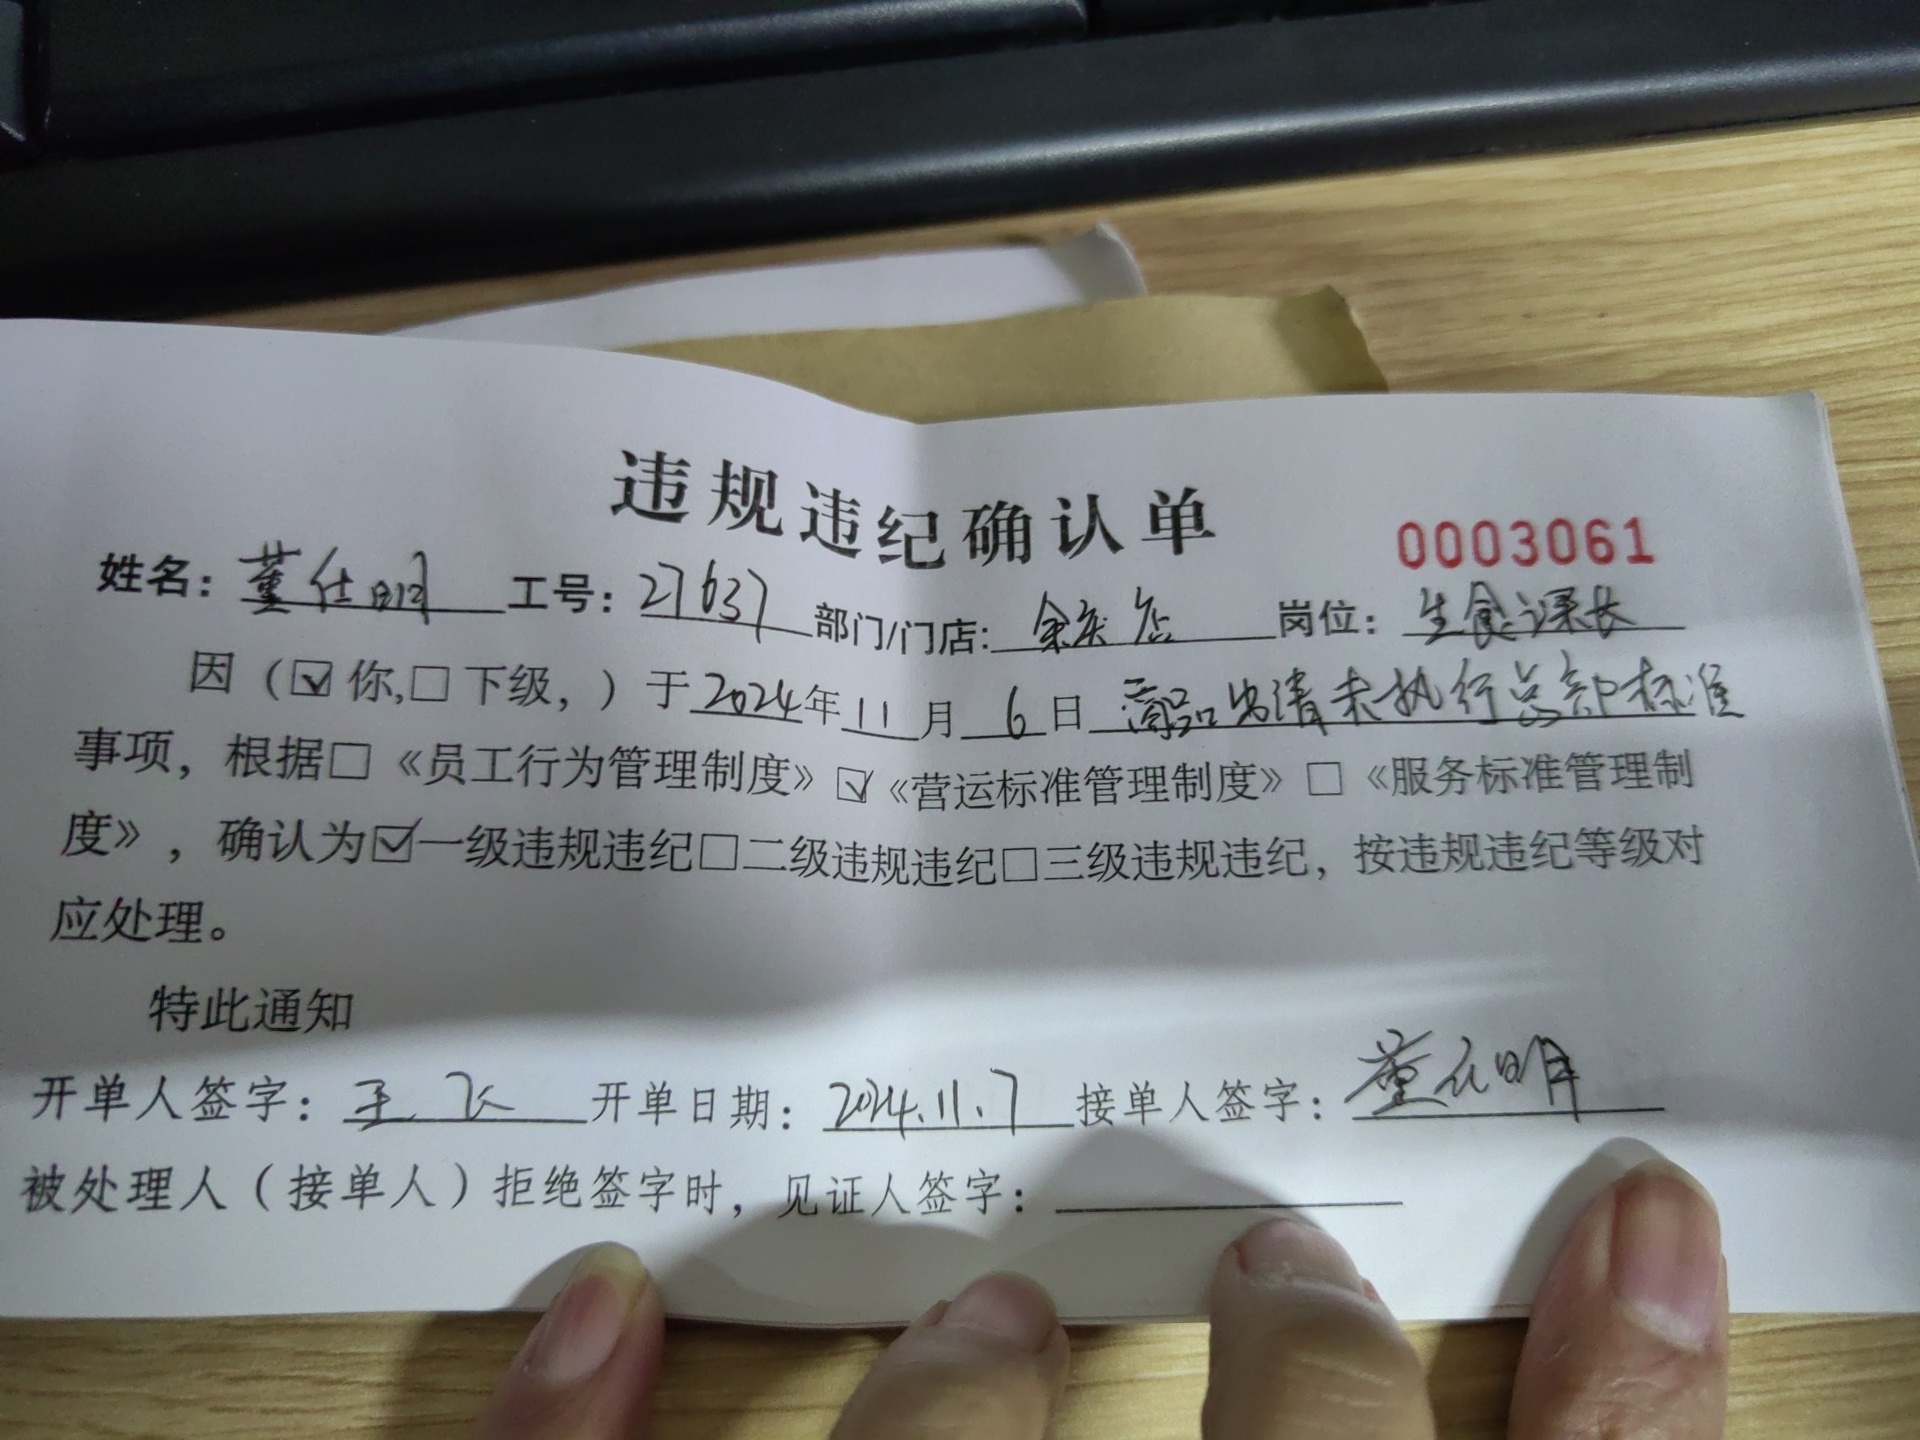 违规违纪确认单
0003061
姓名：董仕明 工号：27637 部门/门店：余庆店 岗位：生食课长
因（☑你,☐下级，）于2024年11月6日 商品出清未执行总部标准
事项，根据☐《员工行为管理制度》☑《营运标准管理制度》☐《服务标准管理制
度》，确认为☑一级违规违纪☐二级违规违纪☐三级违规违纪，按违规违纪等级对
应处理。
特此通知
开单人签字：王飞 开单日期：2024.11.7 接单人签字：董仕明
被处理人（接单人）拒绝签字时，见证人签字：